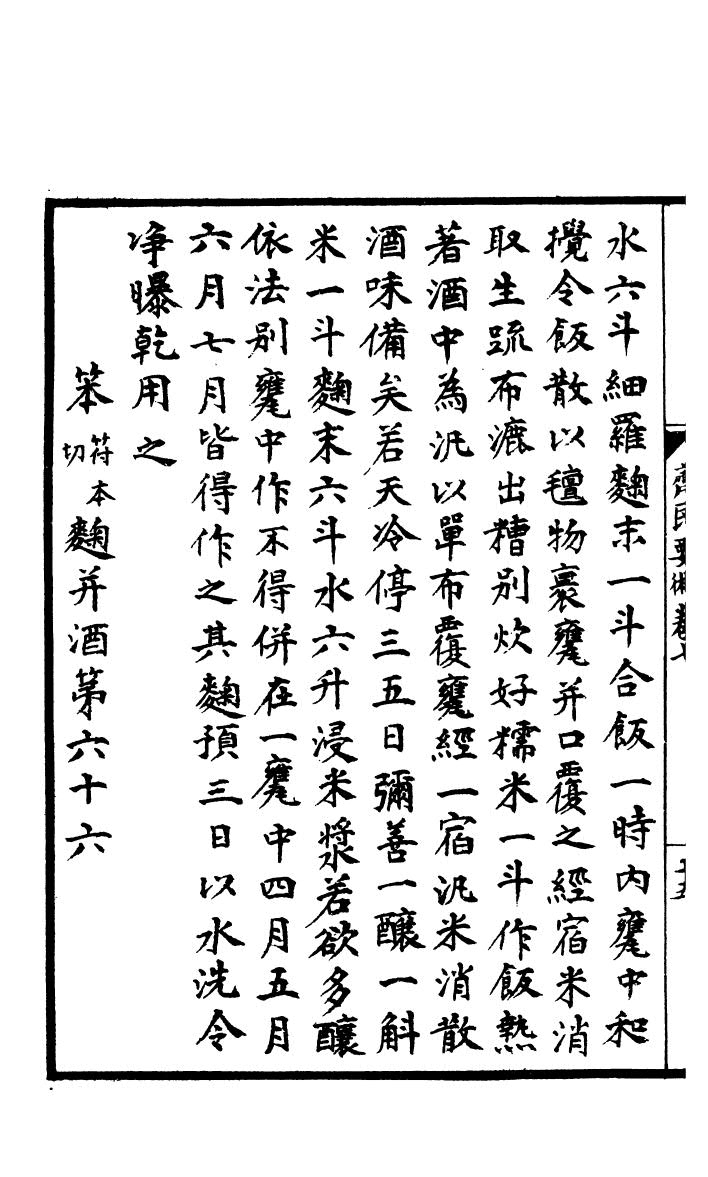 水六斗細羅麴末一斗合飯一時內甕中和
攪令飯散以氊物裹甕并口覆之經宿米消
取生疏布漉出糟別炊好糯米一斗作飯熱
著酒中為汎以單布覆甕經一宿汎米消散
酒味備矣若天冷停三五日彌善一釀一斛
米一斗麴末六斗水六升浸米漿若欲多釀
依法別甕中作不得併在一甕中四月五月
六月七月皆得作之其麴預三日以水洗令
净曝乾用之
笨符本切麴并酒第六十六
齊民要術卷七